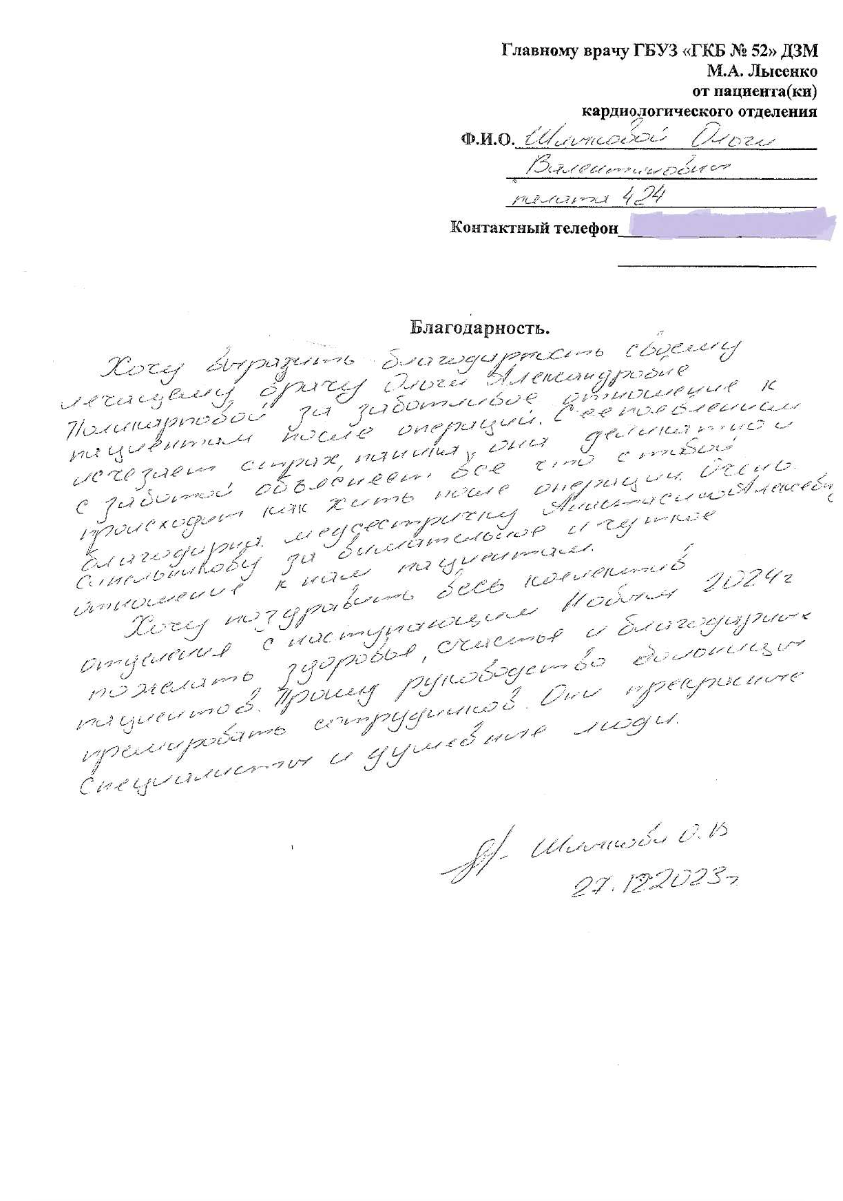 Главному врачу ГБУЗ «ГКБ № 52» ДЗМ
М.А. Лысенко
от пациента(ки)
кардиологического отделения
Ф.И.О. Ольги
Валентиновны
палата 424
Контактный телефон
Благодарность.
Хочу выразить благодарность своему
лечащему врачу Ольги Александровне
Поликарповой за заботливое отношение к
пациентам после операций. С ее появлением
исчезает страх, паника, она деликатно и
с заботой объясняет все что с тобой
происходит как жить после операции. Очень
благодарна медсестричку Анастасию Алексеевну
Синельникову за внимательное и чуткое
отношение к нам пациентам.
Хочу поздравить весь коллектив
отделения с наступающим Новым 2024г
пожелать здоровья, счастья и благодарных
пациентов. Прошу руководство больницы
премировать сотрудников. Они прекрасные
специалисты и душевные люди.
О.В
27.12.2023г